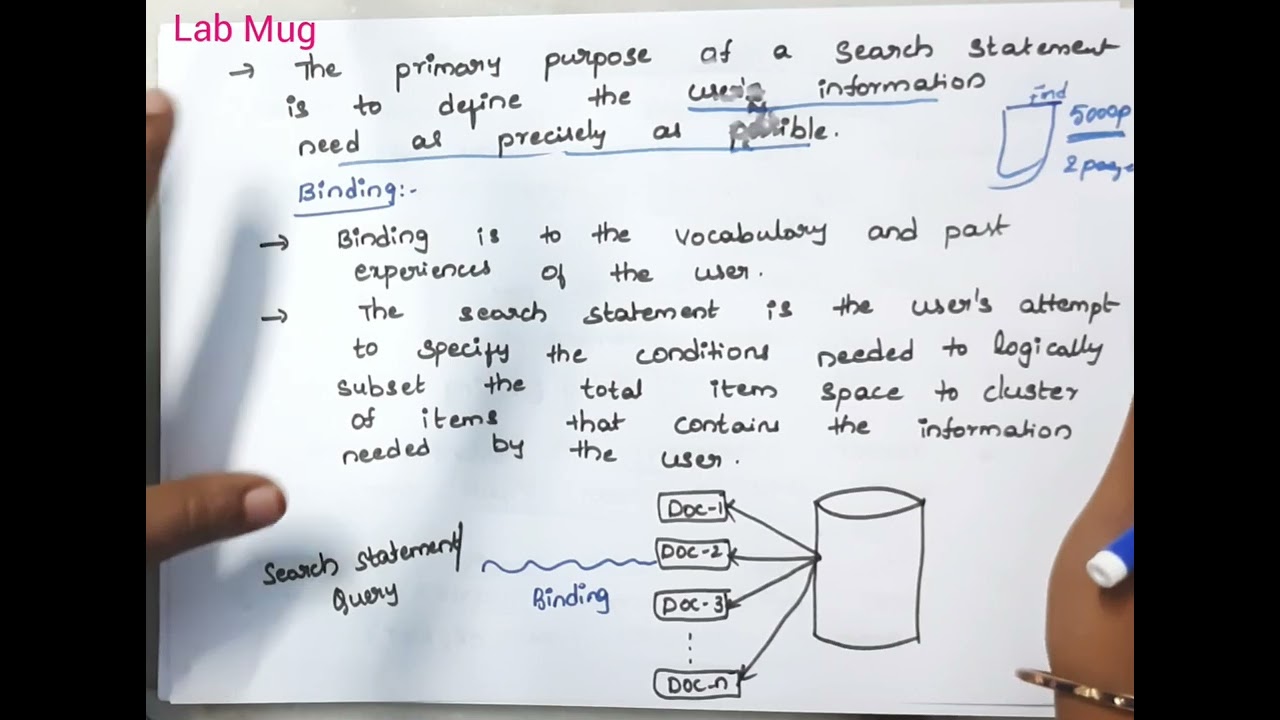 Lab Mug
→ The primary purpose of a search statement
is to define the user's information
need as precisely as possible.
Find
5000p
2 pages
Binding:-
→ Binding is to the vocabulary and past
experiences of the user.
→ The search statement is the user's attempt
to specify the conditions needed to logically
subset the total item space to cluster
of items that contains the information
needed by the user.
Search statement/
Query
Binding
Doc-1
Doc-2
Doc-3
Doc-n